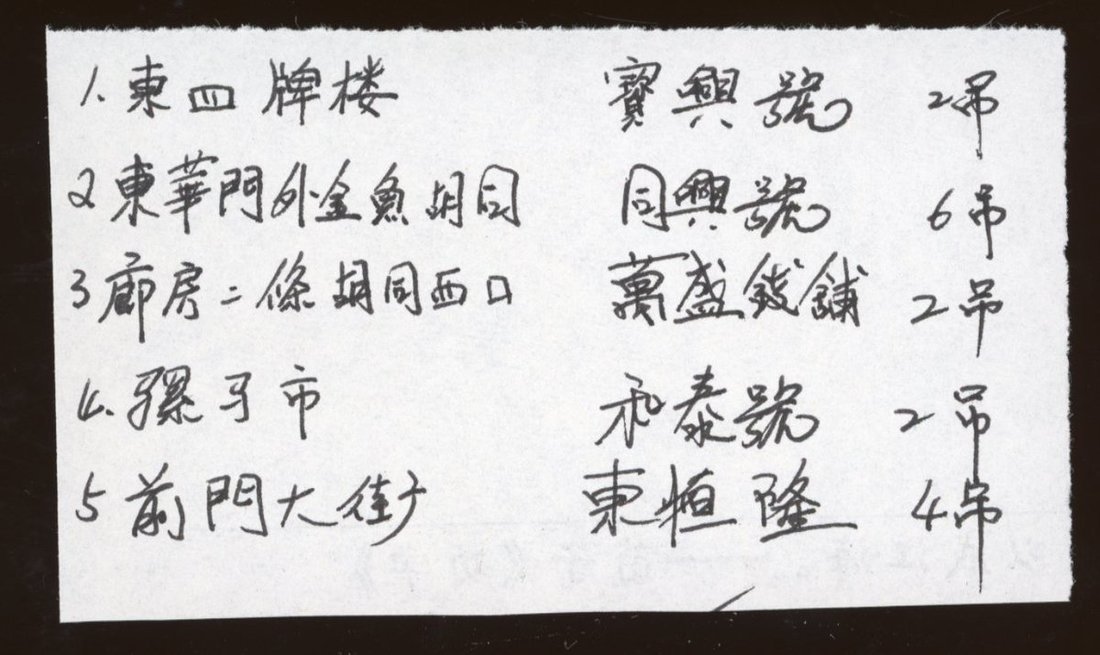 1. 東四牌楼 寳興號 2吊
2 東華門外金魚胡同 同興號 6吊
3 廊房二條胡同西口 萬盛錢舖 2吊
4. 骡马市 永泰號 2吊
5 前門大街 東恒隆 4吊